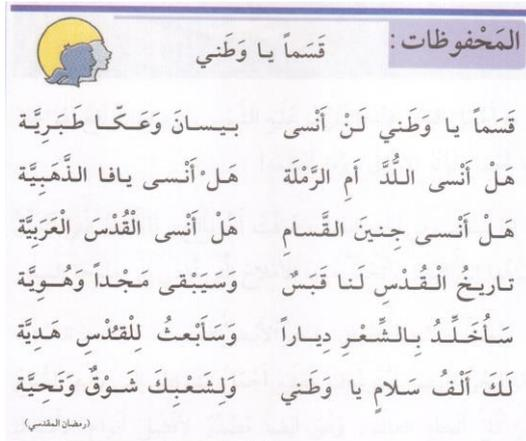 المَحْفوظات :
قَسَماً يا وَطَني
قَسَماً يا وَطَني لَنْ أَنْسى بيسانَ وَعَكا طَبَرِيَّة
هَل أَنْسى اللُّدَّ أَمِ الرَّمْلة هَلْ أَنْسى يافا الذَّهَبِيَّة
هَلْ أَنْسى جِنينَ القَسام هَلْ أَنْسى الْقُدْسَ الْعَرَبِيَّة
تاريخُ الْقُدْسِ لَنا قَبَسٌ وَسَيبْقى مَجْداً وَهُوِيَّة
سَأُخَلِّدُ بِالشِّعْرِ دِياراً وَسَأَبْعَثُ لِلْقُدْسِ هَدِيَّة
لَكَ أَلْفُ سَلامٍ يا وَطَني وَلِشَعْبِكَ شَوْقٌ وَتَحِيَّة
(رمضان المقدسي)